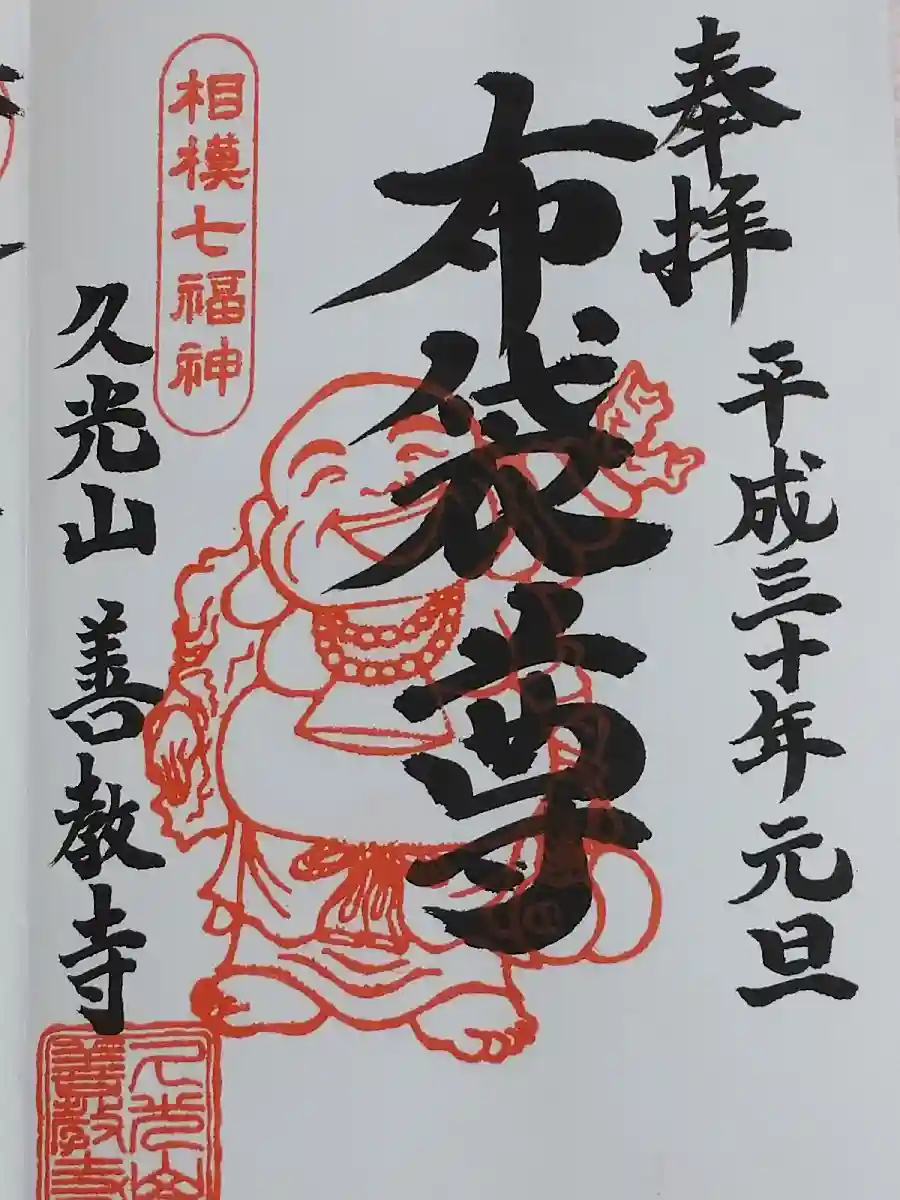 奉拝
平成三十年 元旦
布袋尊
相模七福神
久光山 善教寺
久光山
善教寺